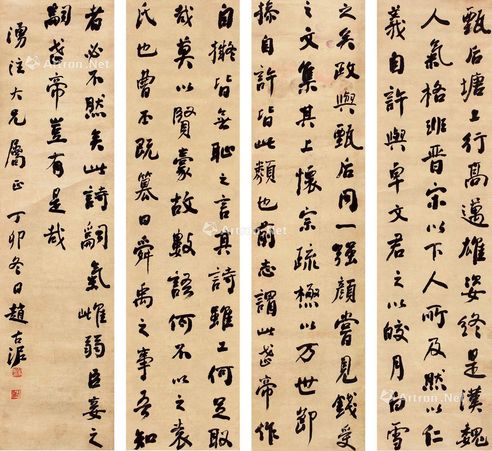 甄后塘上行高邁雄姿終是漢魏
人氣格班晉宗以下人所及然以仁
義自許與卓文君之以皎月白雪
之矣政與甄后同一强顏嘗見錢受
之文集其上懷宗疏極以万世節
操自許皆此類也前志謂此曹帝作
自擬皆無恥之言其詩雖工何足取
哉莫以賢豪故數語何不以之哀
氏也曹丕既篡曰舜禹之事吾知
者必不然矣此詩辭氣雌弱臣妾之
辭曹帝豈有是哉
湧注大兄屬正 丁卯冬日趙古泥
Artron.Net
Artron.Net
Artron.Net
Artron.Net